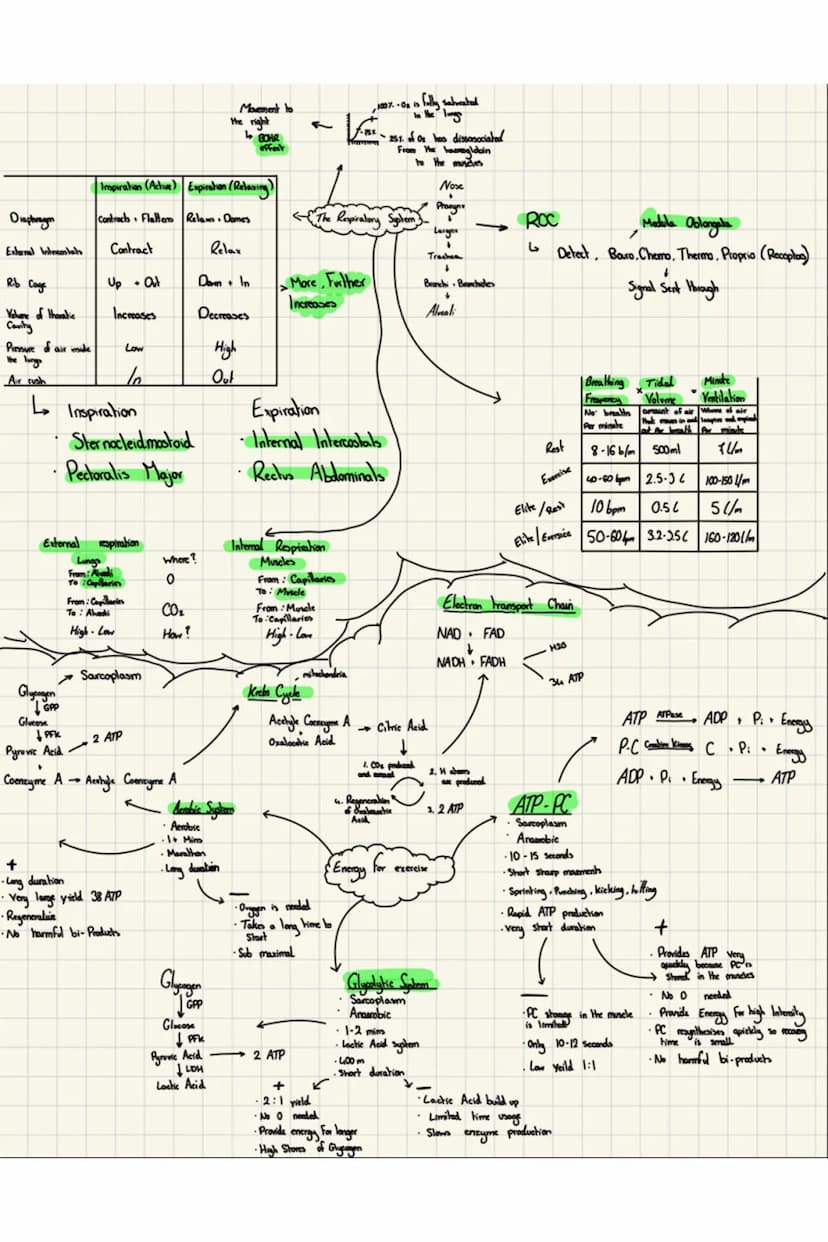 Movement to
the right
↳ BOHR
effect
100% - O2 is fully saturated
in the lungs
25%
25% of O2 has dissasociated
From the haemoglobin
to the muscles
The Respiratory System
Nose
Pharynx
Larynx
Trachea
Bronchi + Bronchioles
Alveoli
RCC
Medula Oblongata
Detect, Baro, Chemo, Thermo, Proprio (Receptors)
Signal Sent through
Inspiration (Active) Expiration (Relaxing)
Diaphragm Contracts + Flattens Relaxes + Domes
External Intercostals Contract Relax
Rib Cage Up + Out Down + In
Volume of thoracic Cavity Increases Decreases
Pressure of air inside the lungs Low High
Air rush In Out
More, Further
Increases
Inspiration
· Sternocleidomastoid
· Pectoralis Major
Expiration
· Internal Intercostals
· Rectus Abdominals
Breathing Frequency × Tidal Volume = Minute Ventilation
No. breaths Per minute
amount of air that moves in and out Per breath
Volume of air inspired and expired Per minute
Rest 8-16 b/m 500ml
Exercise 40-60 bpm 100-150 l/m
Elite/Rest 10 bpm 0.5 L 5 L/m
Elite/Exercise 50-60 bpm 3.2-3.5L 160-120 l/m
External respiration
Internal Respiration
Lungs Where? Muscles
From: Alveoli
To: Capillaries
O
From: Capillaries
To: Muscle
From: Capillaries
To: Alveoli
CO2
From: Muscle
To: Capillaries
High - Low How? High - Low
Electron Transport Chain
NAD + FAD
NADH + FADH
H2O
34 ATP
Sarcoplasm
Glycogen
GPP
Glucose
PFK
Pyruvic Acid
2 ATP
+
Coenzyme A → Acetyle Coenzyme A
Krebs Cycle
mitochondria
Acetyle Coenzyme A → Citric Acid
+
Oxaloacitic Acid
1. CO2 produced
and
2. H atoms
are produced
3. 2 ATP
4. Regeneration
of Oxaloacitic
Acid
ATP ATPase → ADP + Pi + Energy
P.C Creatine Kinase C + Pi + Energy
ADP + Pi + Energy → ATP
Energy for exercise
Aerobic System
· Aerobic
· 1+ Mins
· Marathon
· Long duration
+
· Long duration
· Very large yield 38 ATP
· No harmful bi-Products
—
· Oxygen is needed
· Takes a long time to
Start
· Sub maximal
ATP-PC
· Sarcoplasm
· Anaerobic
· 10-15 seconds
· Short sharp movements
· Sprinting, Punching, kicking, hitting
· Rapid ATP production
· Very short duration
—
· PC storage in the muscle
is limited
· Only 10-12 seconds
· Low yeild 1:1
+
· Provides ATP very
quickly because PC is
Stored in the muscles
· No O needed
· Provide Energy For high Intensity
· PC resynthesises quickly so recovery
time is small
· No harmful bi-products
Glycolytic System
· Sarcoplasm
· Anaerobic
· 1-2 mins
· Lactic Acid system
· 400m
· Short duration
Glycogen
GPP
Glucose
PFK
Pyruvic Acid → 2 ATP
LDH
Lactic Acid
+
· 2:1 yield
· No O needed
· Provide energy For longer
· High Stores of Glycogen
—
· Lactic Acid build up
· Limited time usage
· Slows enzyme production